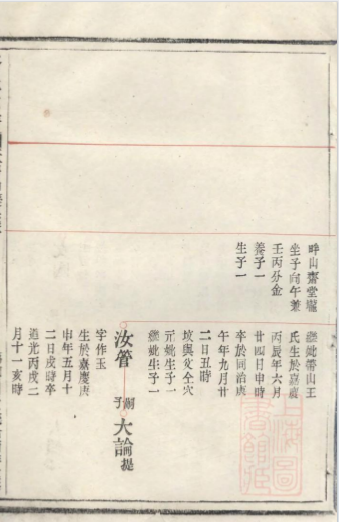 畔山齋堂壠
坐子向午兼
壬丙分金
養子一
生子一
繼妣帶山王
氏生於嘉慶
丙辰年六月
廿四日申時
卒於同治庚
午年九月廿
二日丑時
坟與父仝穴
元妣生子一
繼妣生子一
汝管 嗣子 大論 提
字作玉
生於嘉慶庚
申年五月十
二日戌時卒
道光丙戌二
月十一亥時